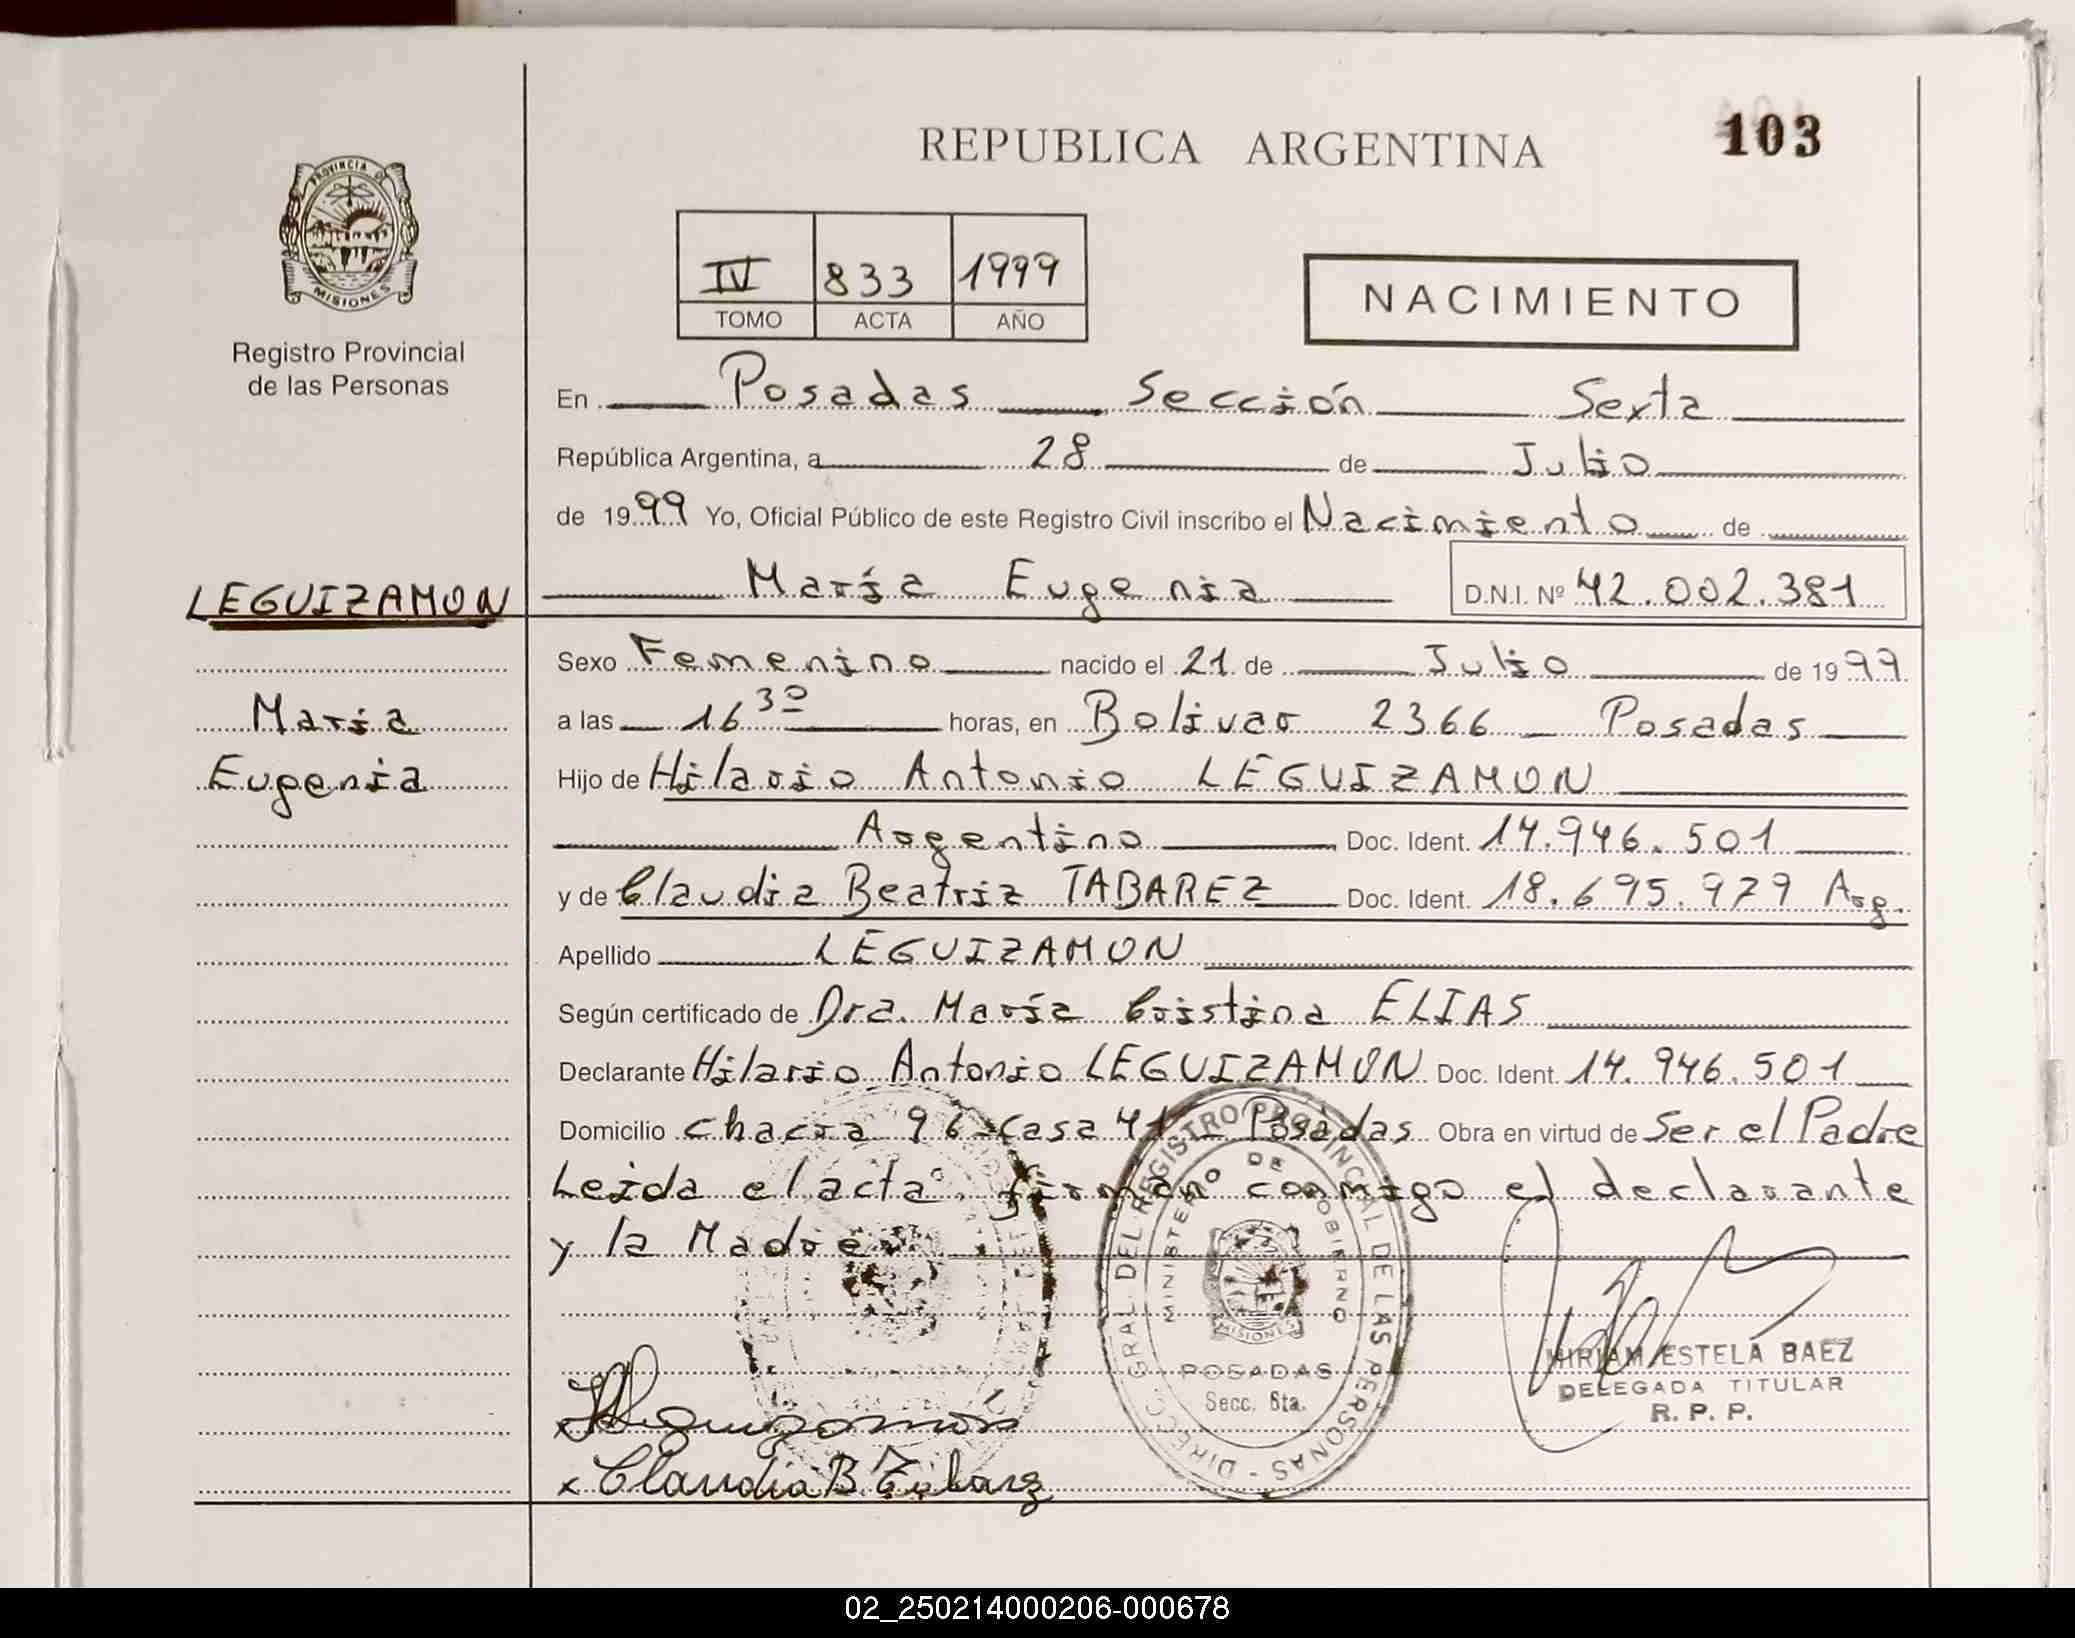 REPUBLICA ARGENTINA
103
PROVINCIA DE
MISIONES
Registro Provincial
de las Personas
IV 833 1999
TOMO ACTA AÑO
NACIMIENTO
En Posadas Sección Sexta
República Argentina, a 28 de Julio
de 1999 Yo, Oficial Público de este Registro Civil inscribo el Nacimiento de
LEGUIZAMON
María Eugenia D.N.I. Nº 42.002.381
Sexo Femenino nacido el 21 de Julio de 1999
Maria
Eugenia
a las 16 30 horas, en Bolivar 2366 Posadas
Hijo de Hilario Antonio LEGUIZAMON
Argentino Doc. Ident. 14.946.501
y de Claudia Beatriz TABAREZ Doc. Ident. 18.695.979 Arg.
Apellido LEGUIZAMON
Según certificado de Dra. María Cristina ELIAS
Declarante Hilario Antonio LEGUIZAMON Doc. Ident. 14.946.501
Domicilio chacra 96-Casa 41- Posadas Obra en virtud de Ser el Padre
Leida el acta, firman conmigo el declarante
y la Madre
DIRECC. GRAL. DEL REGISTRO PROVINCIAL DE LAS PERSONAS
MINISTERIO DE GOBIERNO
MISIONES
POSADAS
Secc. 6ta.
MIRIAM ESTELA BAEZ
DELEGADA TITULAR
R. P. P.
x Leguizamón
x Claudia B. Tabarez
02_250214000206-000678